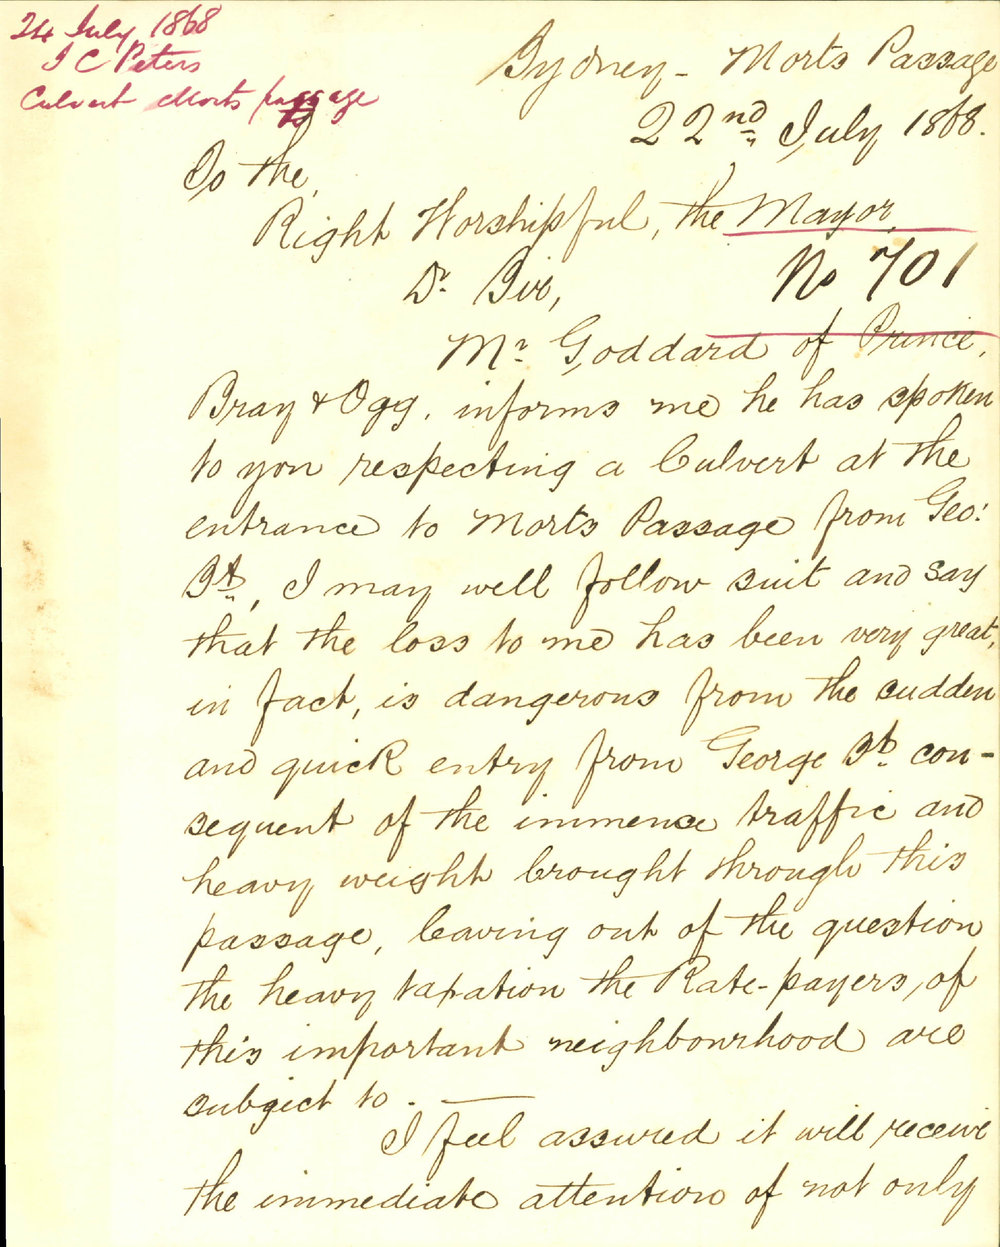 24 July, 1868
J C Peters
Culvert Morts passage
Sydney - Morts Passage
22nd July 1868.
To the,
Right Worshipful, the Mayor,
Dr. Sir,
No 701
Mr. Goddard of Prince,
Bray & Ogg. informs me he has spoken
to you respecting a Culvert at the
entrance to Morts Passage from Geo:
St., I may well follow suit and say
that the loss to me has been very great,
in fact, is dangerous from the sudden
and quick entry from George St. con-
sequent of the immence traffic and
heavy weight brought through this
passage, leaving out of the question
the heavy taxation the Rate-payers, of
this important neighbourhood are
subgect to. —
I feel assured it will receive
the immediate attention of not only